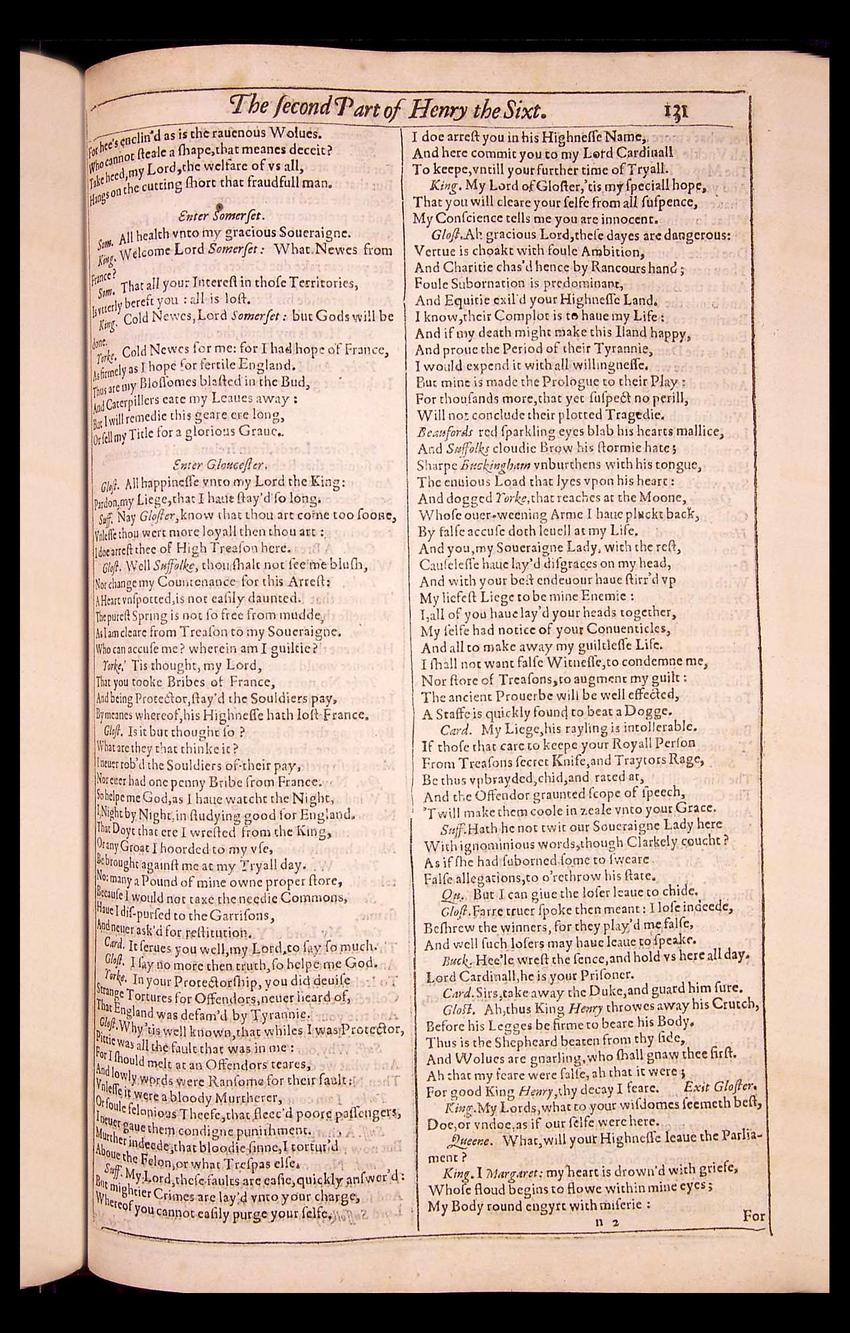 The ſecond Part of Henry the Sixt. 131
For hee's enclin'd as is the rauenous Wolues.
Who cannot ſteale a ſhape, that meanes deceit?
Take heed, my Lord, the welfare of vs all,
Hangs on the cutting ſhort that fraudfull man.
Enter Somerſet.
Som. All health vnto my gracious Soueraigne.
King. Welcome Lord Somerſet: What Newes from
France?
Som. That all your Intereſt in thoſe Territories,
Is vtterly bereft you: all is loſt.
King. Cold Newes, Lord Somerſet: but Gods will be
done.
Yorke. Cold Newes for me: for I had hope of France,
As firmely as I hope for fertile England.
Thus are my Bloſſomes blaſted in the Bud,
And Caterpillers eate my Leaues away:
But I will remedie this geare ere long,
Or ſell my Title for a glorious Graue.
Enter Glouceſter.
Gloſt. All happineſſe vnto my Lord the King:
Pardon, my Liege, that I haue ſtay'd ſo long.
Suff. Nay Gloſter, know that thou art come too ſoone,
Vnleſſe thou wert more loyall then thou art:
I doe arreſt thee of High Treaſon here.
Gloſt. Well Suffolke, thou ſhalt not ſee me bluſh,
Nor change my Countenance for this Arreſt:
A Heart vnſpotted, is not eaſily daunted.
The pureſt Spring is not ſo free from mudde,
As I am cleare from Treaſon to my Soueraigne.
Who can accuſe me? wherein am I guiltie?
Yorke. 'Tis thought, my Lord,
That you tooke Bribes of France,
And being Protector, ſtay'd the Souldiers pay,
By meanes whereof, his Highneſſe hath loſt France.
Gloſt. Is it but thought ſo?
What are they that thinke it?
I neuer rob'd the Souldiers of their pay,
Nor euer had one penny Bribe from France.
So helpe me God, as I haue watcht the Night,
I, Night by Night, in ſtudying good for England.
That Doyt that ere I wreſted from the King,
Or any Groat I hoorded to my vſe,
Be brought againſt me at my Tryall day.
No: many a Pound of mine owne proper ſtore,
Becauſe I would not taxe the needie Commons,
Haue I diſ-purſed to the Garriſons,
And neuer ask'd for reſtitution.
Card. It ſerues you well, my Lord, to ſay ſo much.
Gloſt. I ſay no more then truth, ſo helpe me God.
Yorke. In your Protectorſhip, you did deuiſe
Strange Tortures for Offendors, neuer heard of,
That England was defam'd by Tyrannie.
Gloſt. Why 'tis well known, that whiles I was Protector,
Pittie was all the fault that was in me:
For I ſhould melt at an Offendors teares,
And lowly words were Ranſome for their fault:
Vnleſſe it were a bloody Murtherer,
Or foule felonious Theefe, that fleec'd poore paſſengers,
I neuer gaue them condigne puniſhment.
Murther indeede, that bloodie ſinne, I tortur'd
Aboue the Felon, or what Treſpas elſe.
Suff. My Lord, theſe faults are eaſie, quickly anſwer'd:
But mightier Crimes are lay'd vnto your charge,
Whereof you cannot eaſily purge your ſelfe.
I doe arreſt you in his Highneſſe Name,
And here commit you to my Lord Cardinall
To keepe, vntill your further time of Tryall.
King. My Lord of Gloſter, 'tis my ſpeciall hope,
That you will cleare your ſelfe from all ſuſpence,
My Conſcience tells me you are innocent.
Gloſt. Ah gracious Lord, theſe dayes are dangerous:
Vertue is choakt with foule Ambition,
And Charitie chas'd hence by Rancours hand;
Foule Subornation is predominant,
And Equitie exil'd your Highneſſe Land.
I know, their Complot is to haue my Life:
And if my death might make this Iland happy,
And proue the Period of their Tyrannie,
I would expend it with all willingneſſe.
But mine is made the Prologue to their Play:
For thouſands more, that yet ſuſpect no perill,
Will not conclude their plotted Tragedie.
Beaufords red ſparkling eyes blab his hearts mallice,
And Suffolks cloudie Brow his ſtormie hate;
Sharpe Buckingham vnburthens with his tongue,
The enuious Load that lyes vpon his heart:
And dogged Yorke, that reaches at the Moone,
Whoſe ouer-weening Arme I haue pluckt back,
By falſe accuſe doth leuell at my Life.
And you, my Soueraigne Lady, with the reſt,
Cauſeleſſe haue lay'd diſgraces on my head,
And with your beſt endeuour haue ſtirr'd vp
My liefeſt Liege to be mine Enemie:
I, all of you haue lay'd your heads together,
My ſelfe had notice of your Conuenticles,
And all to make away my guiltleſſe Life.
I ſhall not want falſe Witneſſe, to condemne me,
Nor ſtore of Treaſons, to augment my guilt:
The ancient Prouerbe will be well effected,
A Staffe is quickly found to beat a Dogge.
Card. My Liege, his rayling is intollerable.
If thoſe that care to keepe your Royall Perſon
From Treaſons ſecret Knife, and Traytors Rage,
Be thus vpbrayded, chid, and rated at,
And the Offendor graunted ſcope of ſpeech,
'Twill make them coole in zeale vnto your Grace.
Suff. Hath he not twit our Soueraigne Lady here
With ignominious words, though Clarkely coucht?
As if ſhe had ſuborned ſome to ſweare
Falſe allegations, to o'rethrow his ſtate.
Qu. But I can giue the loſer leaue to chide.
Gloſt. Farre truer ſpoke then meant: I loſe indeede,
Beſhrew the winners, for they play'd me falſe,
And well ſuch loſers may haue leaue to ſpeake.
Buck. Hee'le wreſt the ſence, and hold vs here all day.
Lord Cardinall, he is your Priſoner.
Card. Sirs, take away the Duke, and guard him ſure.
Gloſt. Ah, thus King Henry throwes away his Crutch,
Before his Legges be firme to beare his Body.
Thus is the Shepheard beaten from thy ſide,
And Wolues are gnarling, who ſhall gnaw thee firſt.
Ah that my feare were falſe, ah that it were;
For good King Henry, thy decay I feare. Exit Gloſter.
King. My Lords, what to your wiſdomes ſeemeth beſt,
Doe, or vndoe, as if our ſelfe were here.
Queene. What, will your Highneſſe leaue the Parlia-
ment?
King. I Margaret: my heart is drown'd with griefe,
Whoſe floud begins to flowe within mine eyes;
My Body round engyrt with miſerie:
n 2 For